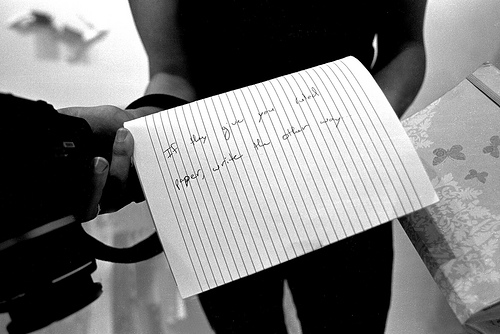 If they give you lined
paper, write the other way.